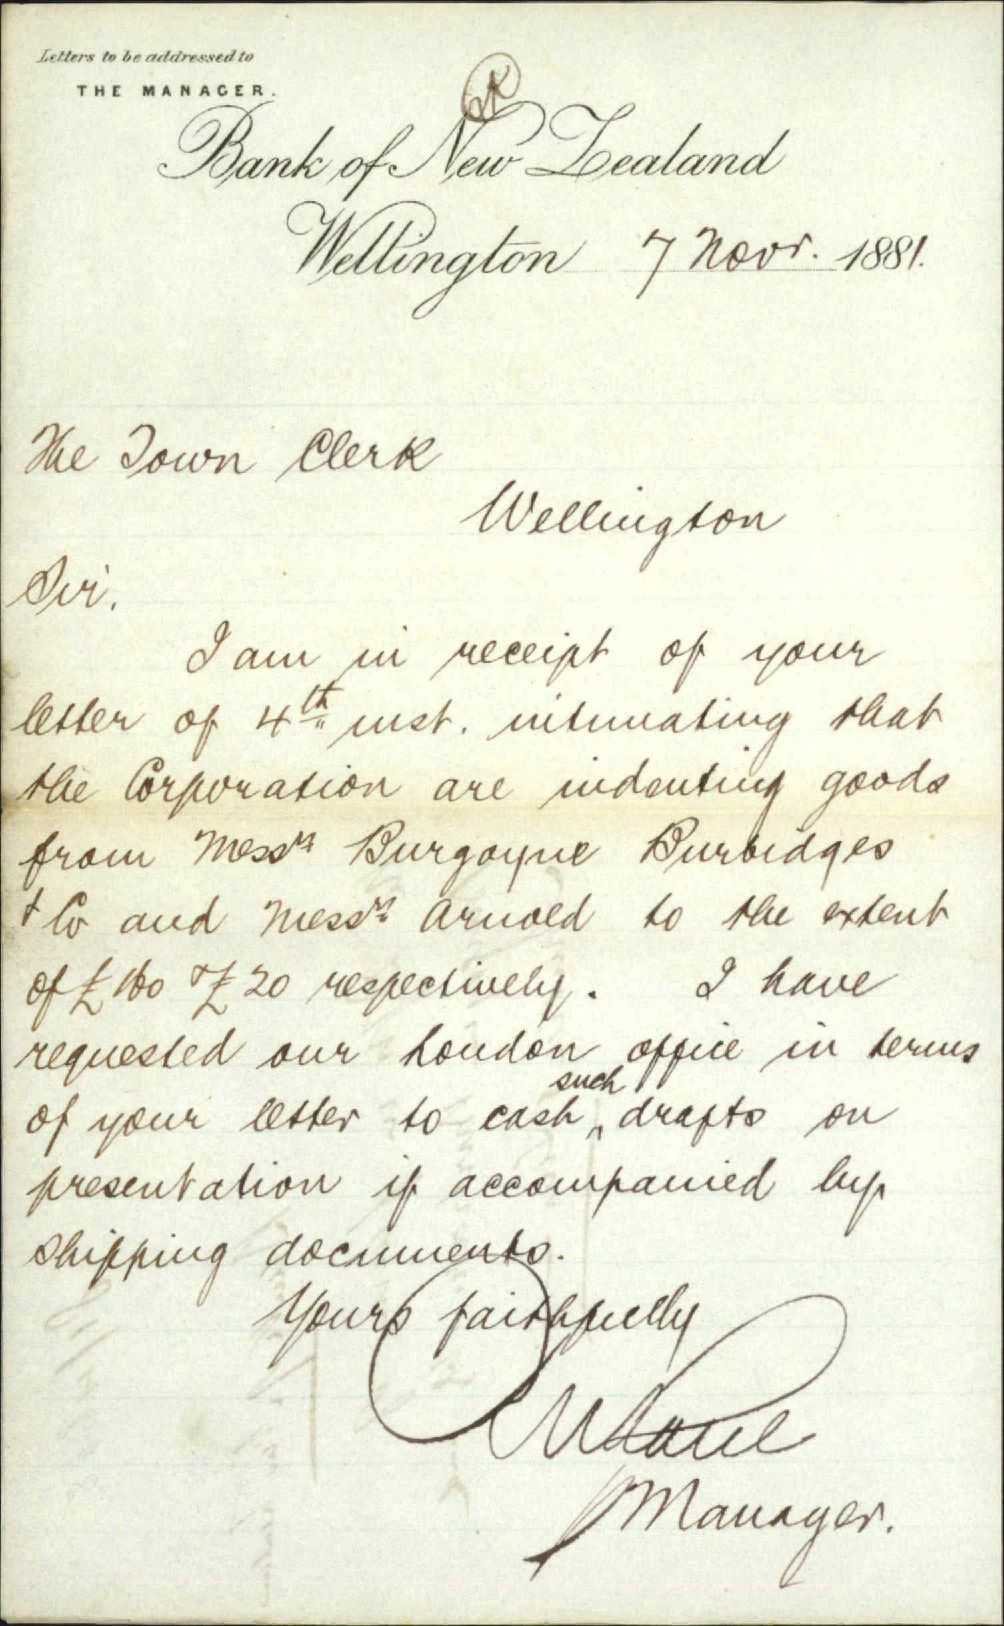 Letters to be addressed to
THE MANAGER.
Bank of New Zealand
Wellington 7 Novr. 1881.
The Town Clerk
Wellington
Sir.
I am in receipt of your
letter of 4th inst. intimating that
the Corporation are indenting goods
from Messrs Burgoyne Burbidges
& Co and Messrs Arnold to the extent
of £100 & £20 respectively. I have
requested our London office in terms
of your letter to cash such drafts on
presentation if accompanied by
shipping documents.
Yours faithfully
Manager.